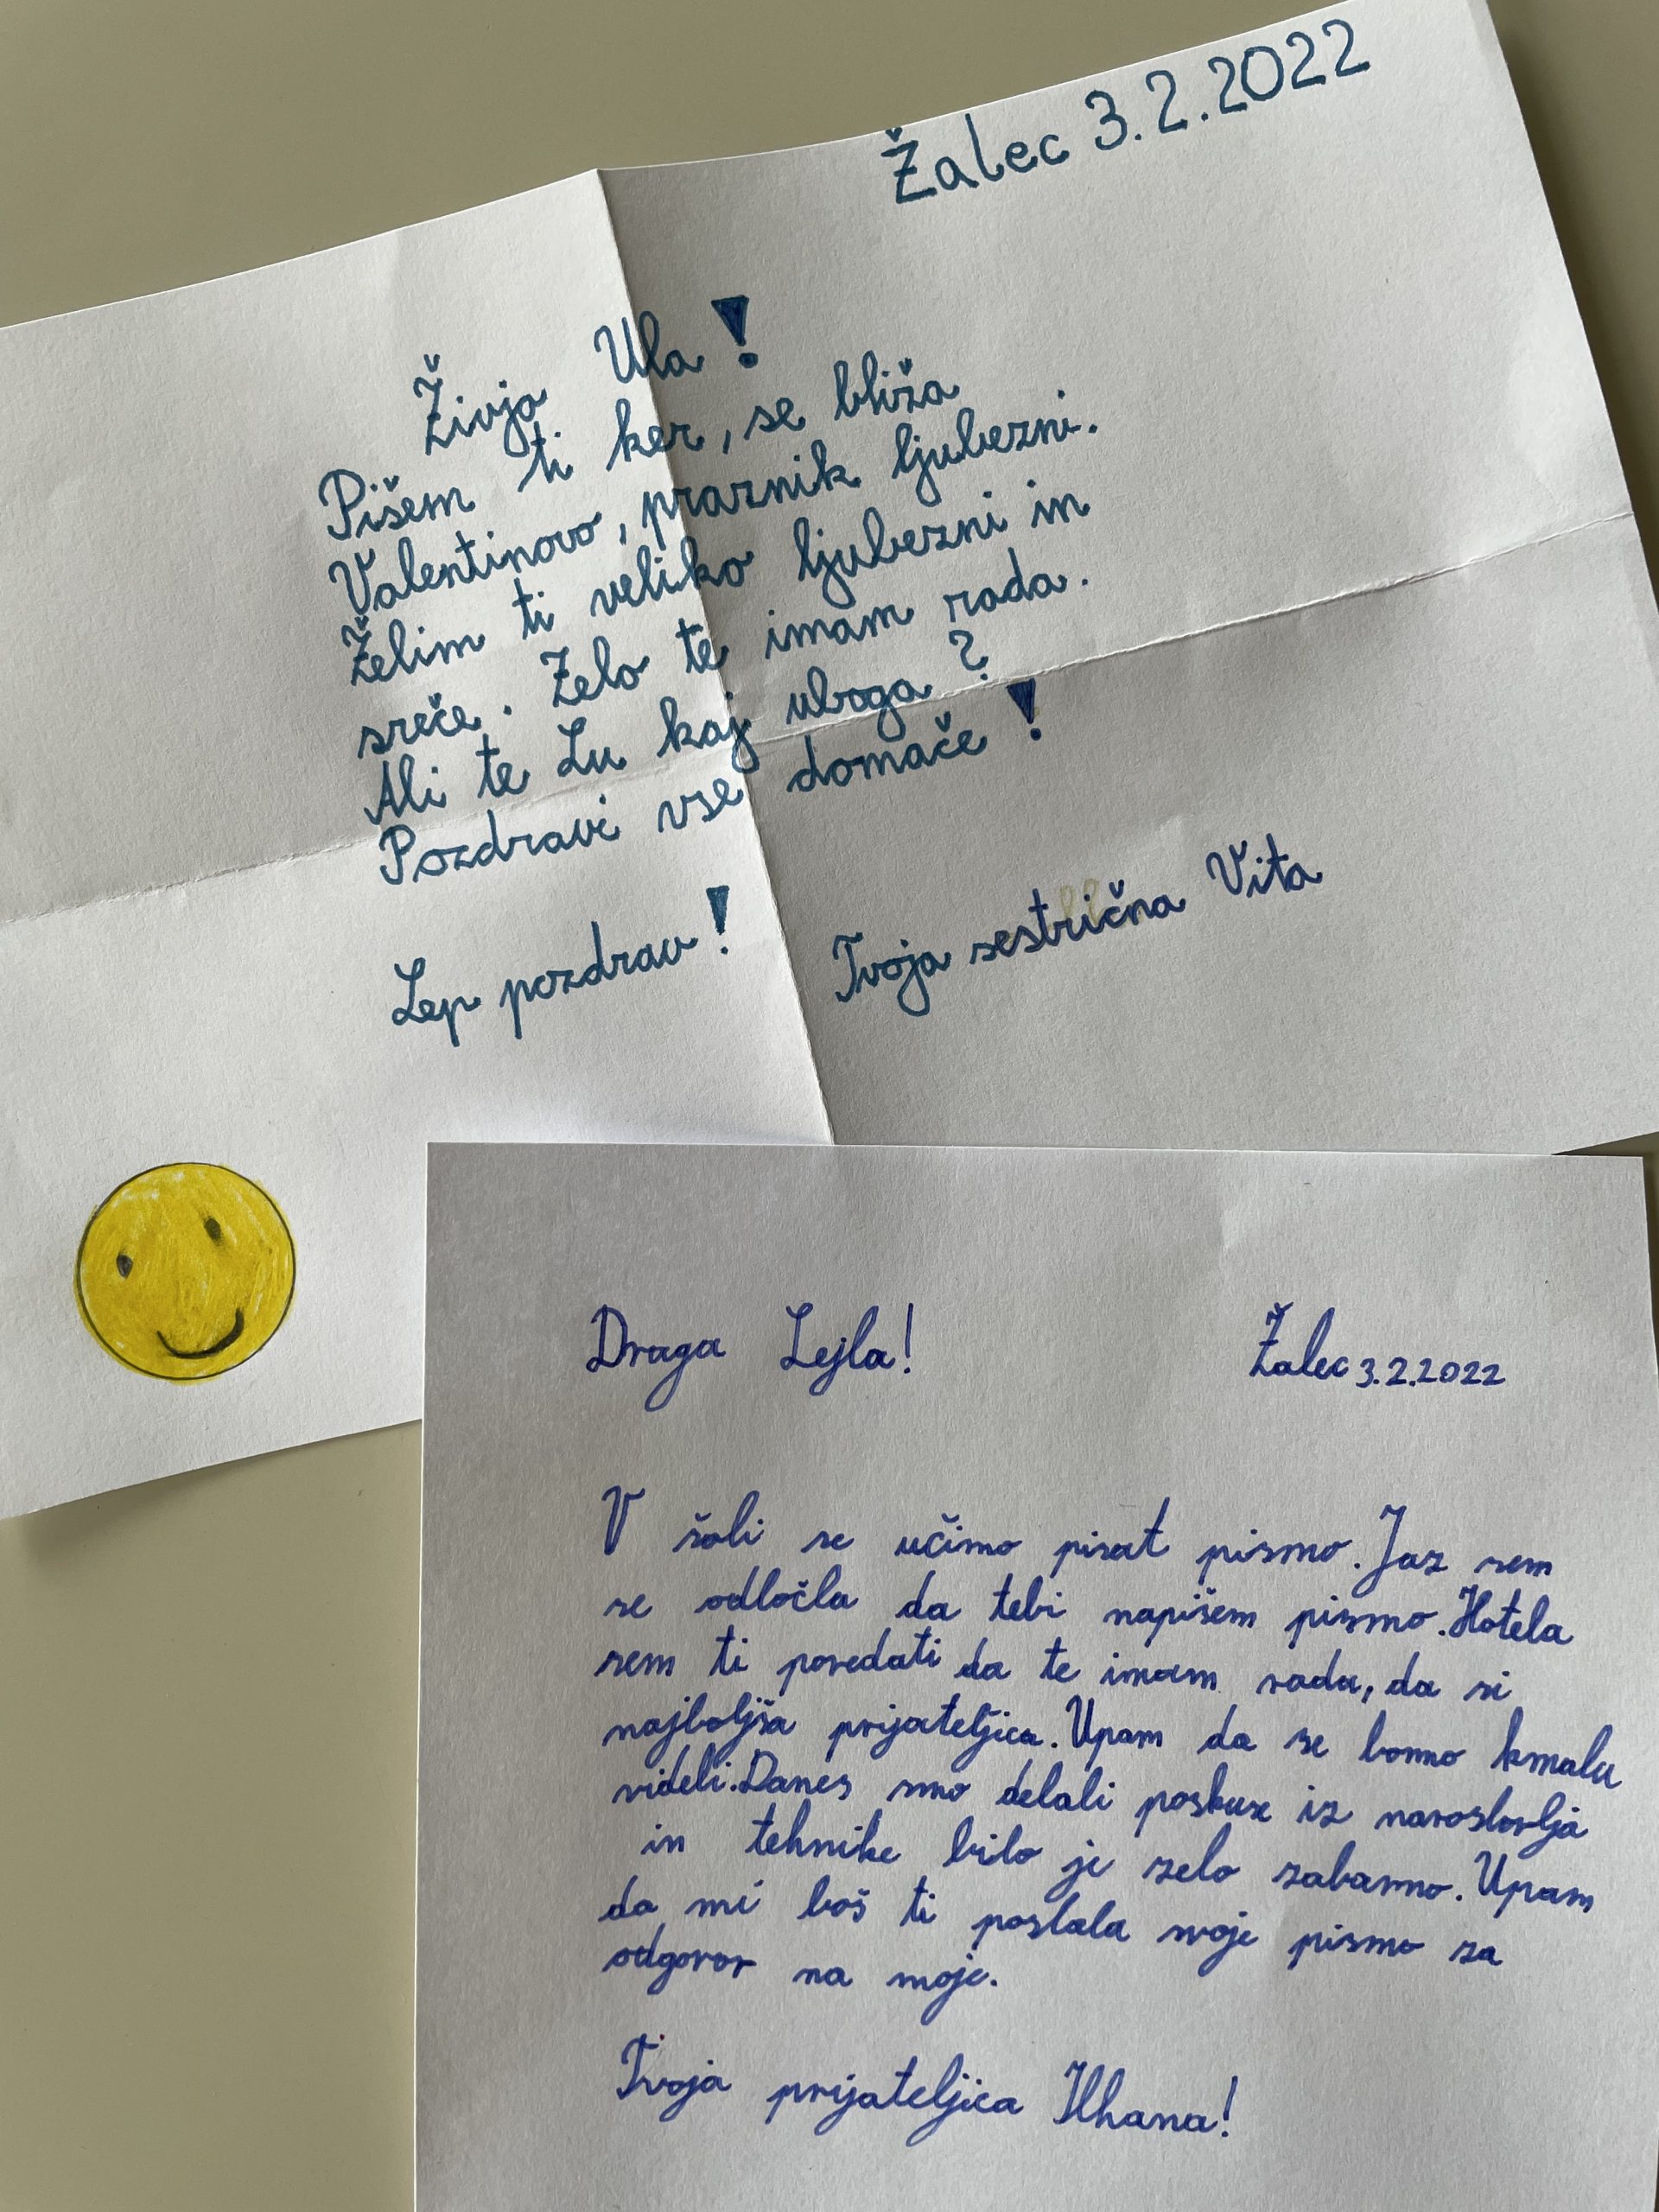 Žalec 3.2.2022
Živjo Ula!
Pišem ti ker, se bliža
Valentinovo, praznik ljubezni.
Želim ti veliko ljubezni in
sreče. Zelo te imam rada.
Ali te Lu kaj uboga?
Pozdravi vse domače!
Lep pozdrav!
Tvoja sestrična Vita
Draga Lejla!
Žalec 3.2.2022
V šoli se učimo pisat pismo. Jaz sem
se odločla da tebi napišem pismo. Hotela
sem ti povedati da te imam rada, da si
najboljša prijateljica. Upam da se bomo kmalu
videli. Danes smo delali poskuse iz naroslovlja
in tehnike bilo je zelo zabavno. Upam
da mi boš ti poslala svoje pismo za
odgovor na moje.
Tvoja prijateljica Ilhana!